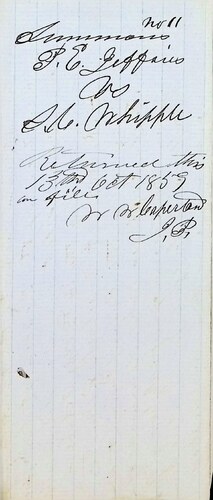 no 11
Summons
P. E. Jeffries
Vs
S. C. Whipple
Returned this
13th Oct 1859
on file
W W Caperton
J. P.